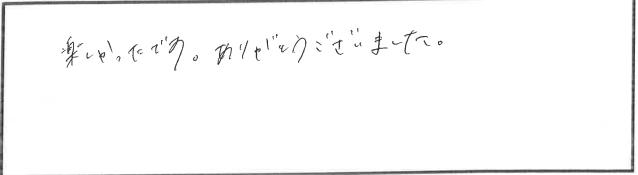 楽しかったです。ありがとうございました。